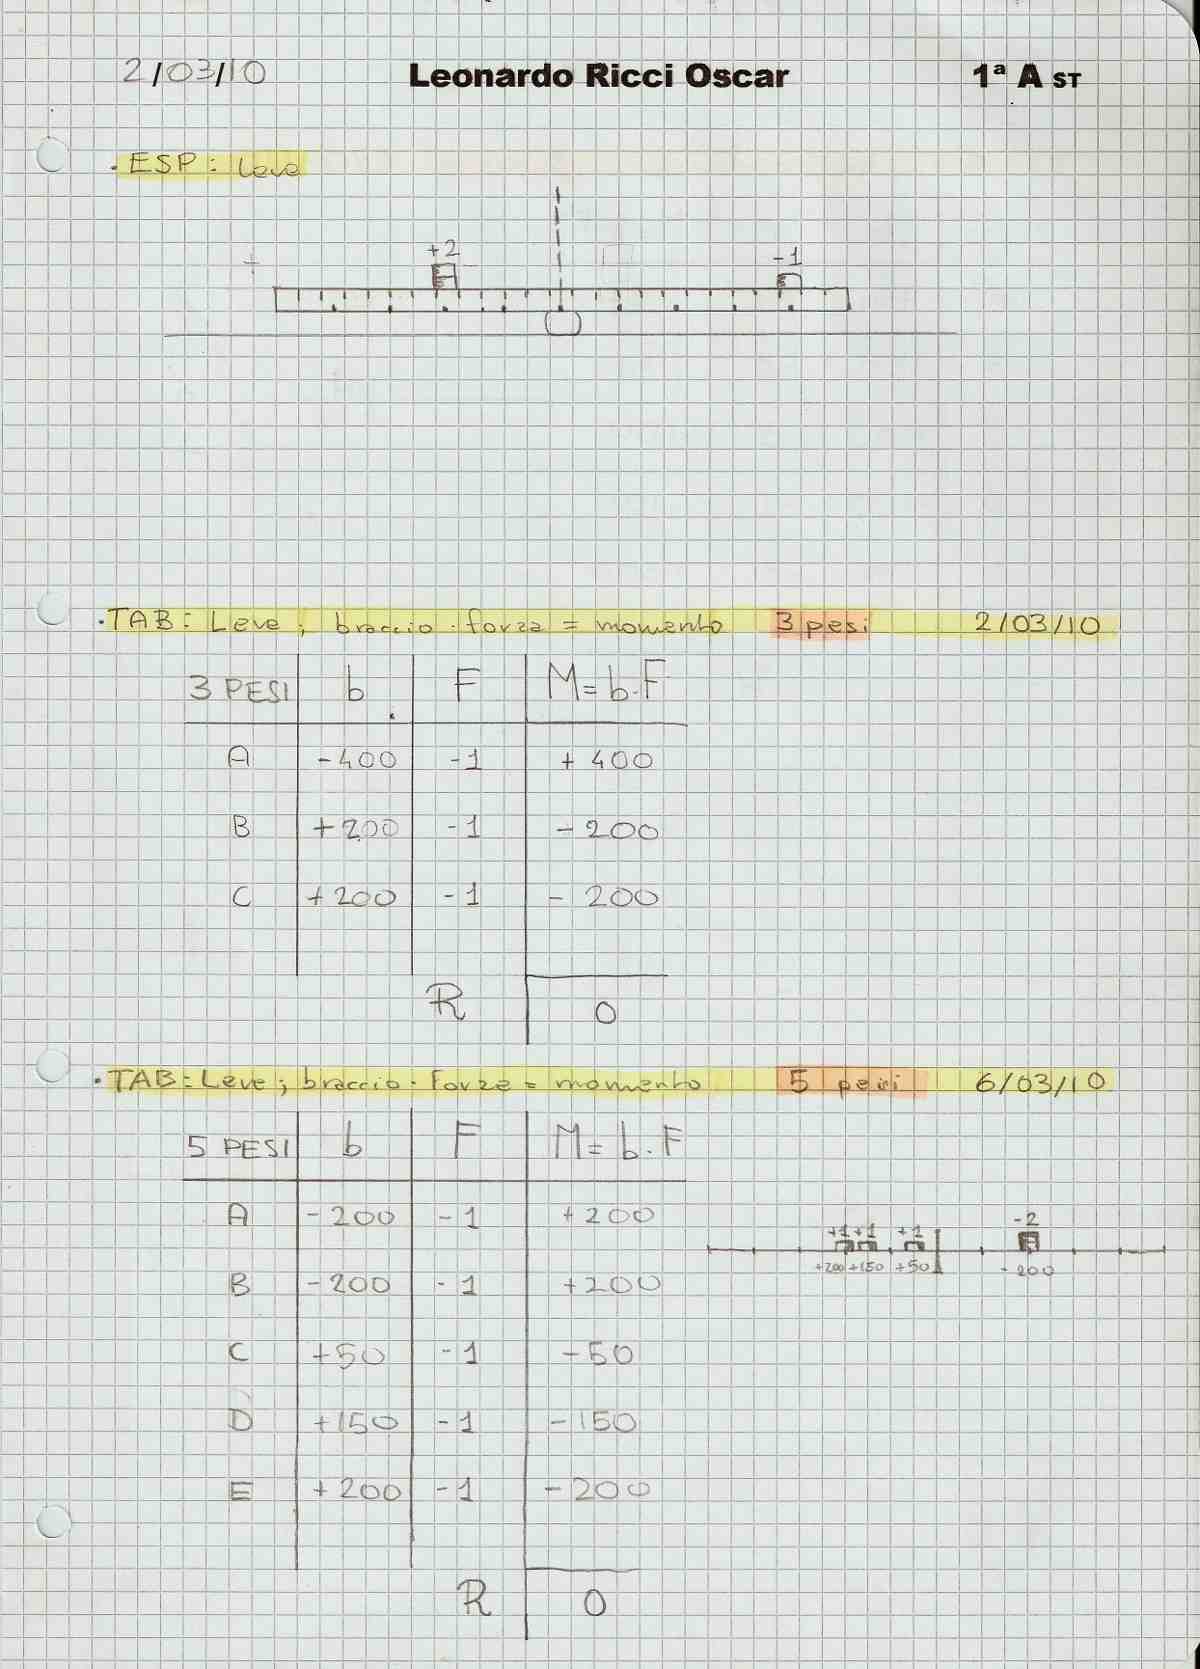 2/03/10 Leonardo Ricci Oscar 1ª A ST
• ESP: Leve
+
+2 -1
• TAB: Leve; braccio · forza = momento 3 pesi 2/03/10
3 PESI b F M = b · F
A -400 -1 + 400
B +200 -1 - 200
C +200 -1 - 200
R 0
• TAB: Leve; braccio · Forza = momento 5 pesi 6/03/10
5 PESI b F M = b · F
A -200 -1 +200
B -200 -1 +200
C +50 -1 -50
D +150 -1 -150
E +200 -1 -200
R 0
+1 +1 +1 -2
+200 +150 +50 -200